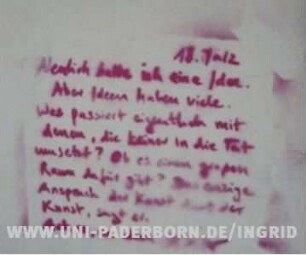 18. März
Neulich hatte ich eine Idee.
Aber Ideen haben viele.
Was passiert eigentlich mit
denen, die keiner in die Tat
umsetzt? Ob es einen großen
Raum dafür gibt? Der einzige
Anspruch der Kunst ist der
Kunst, sagt er.
WWW.UNI-PADERBORN.DE/INGRID